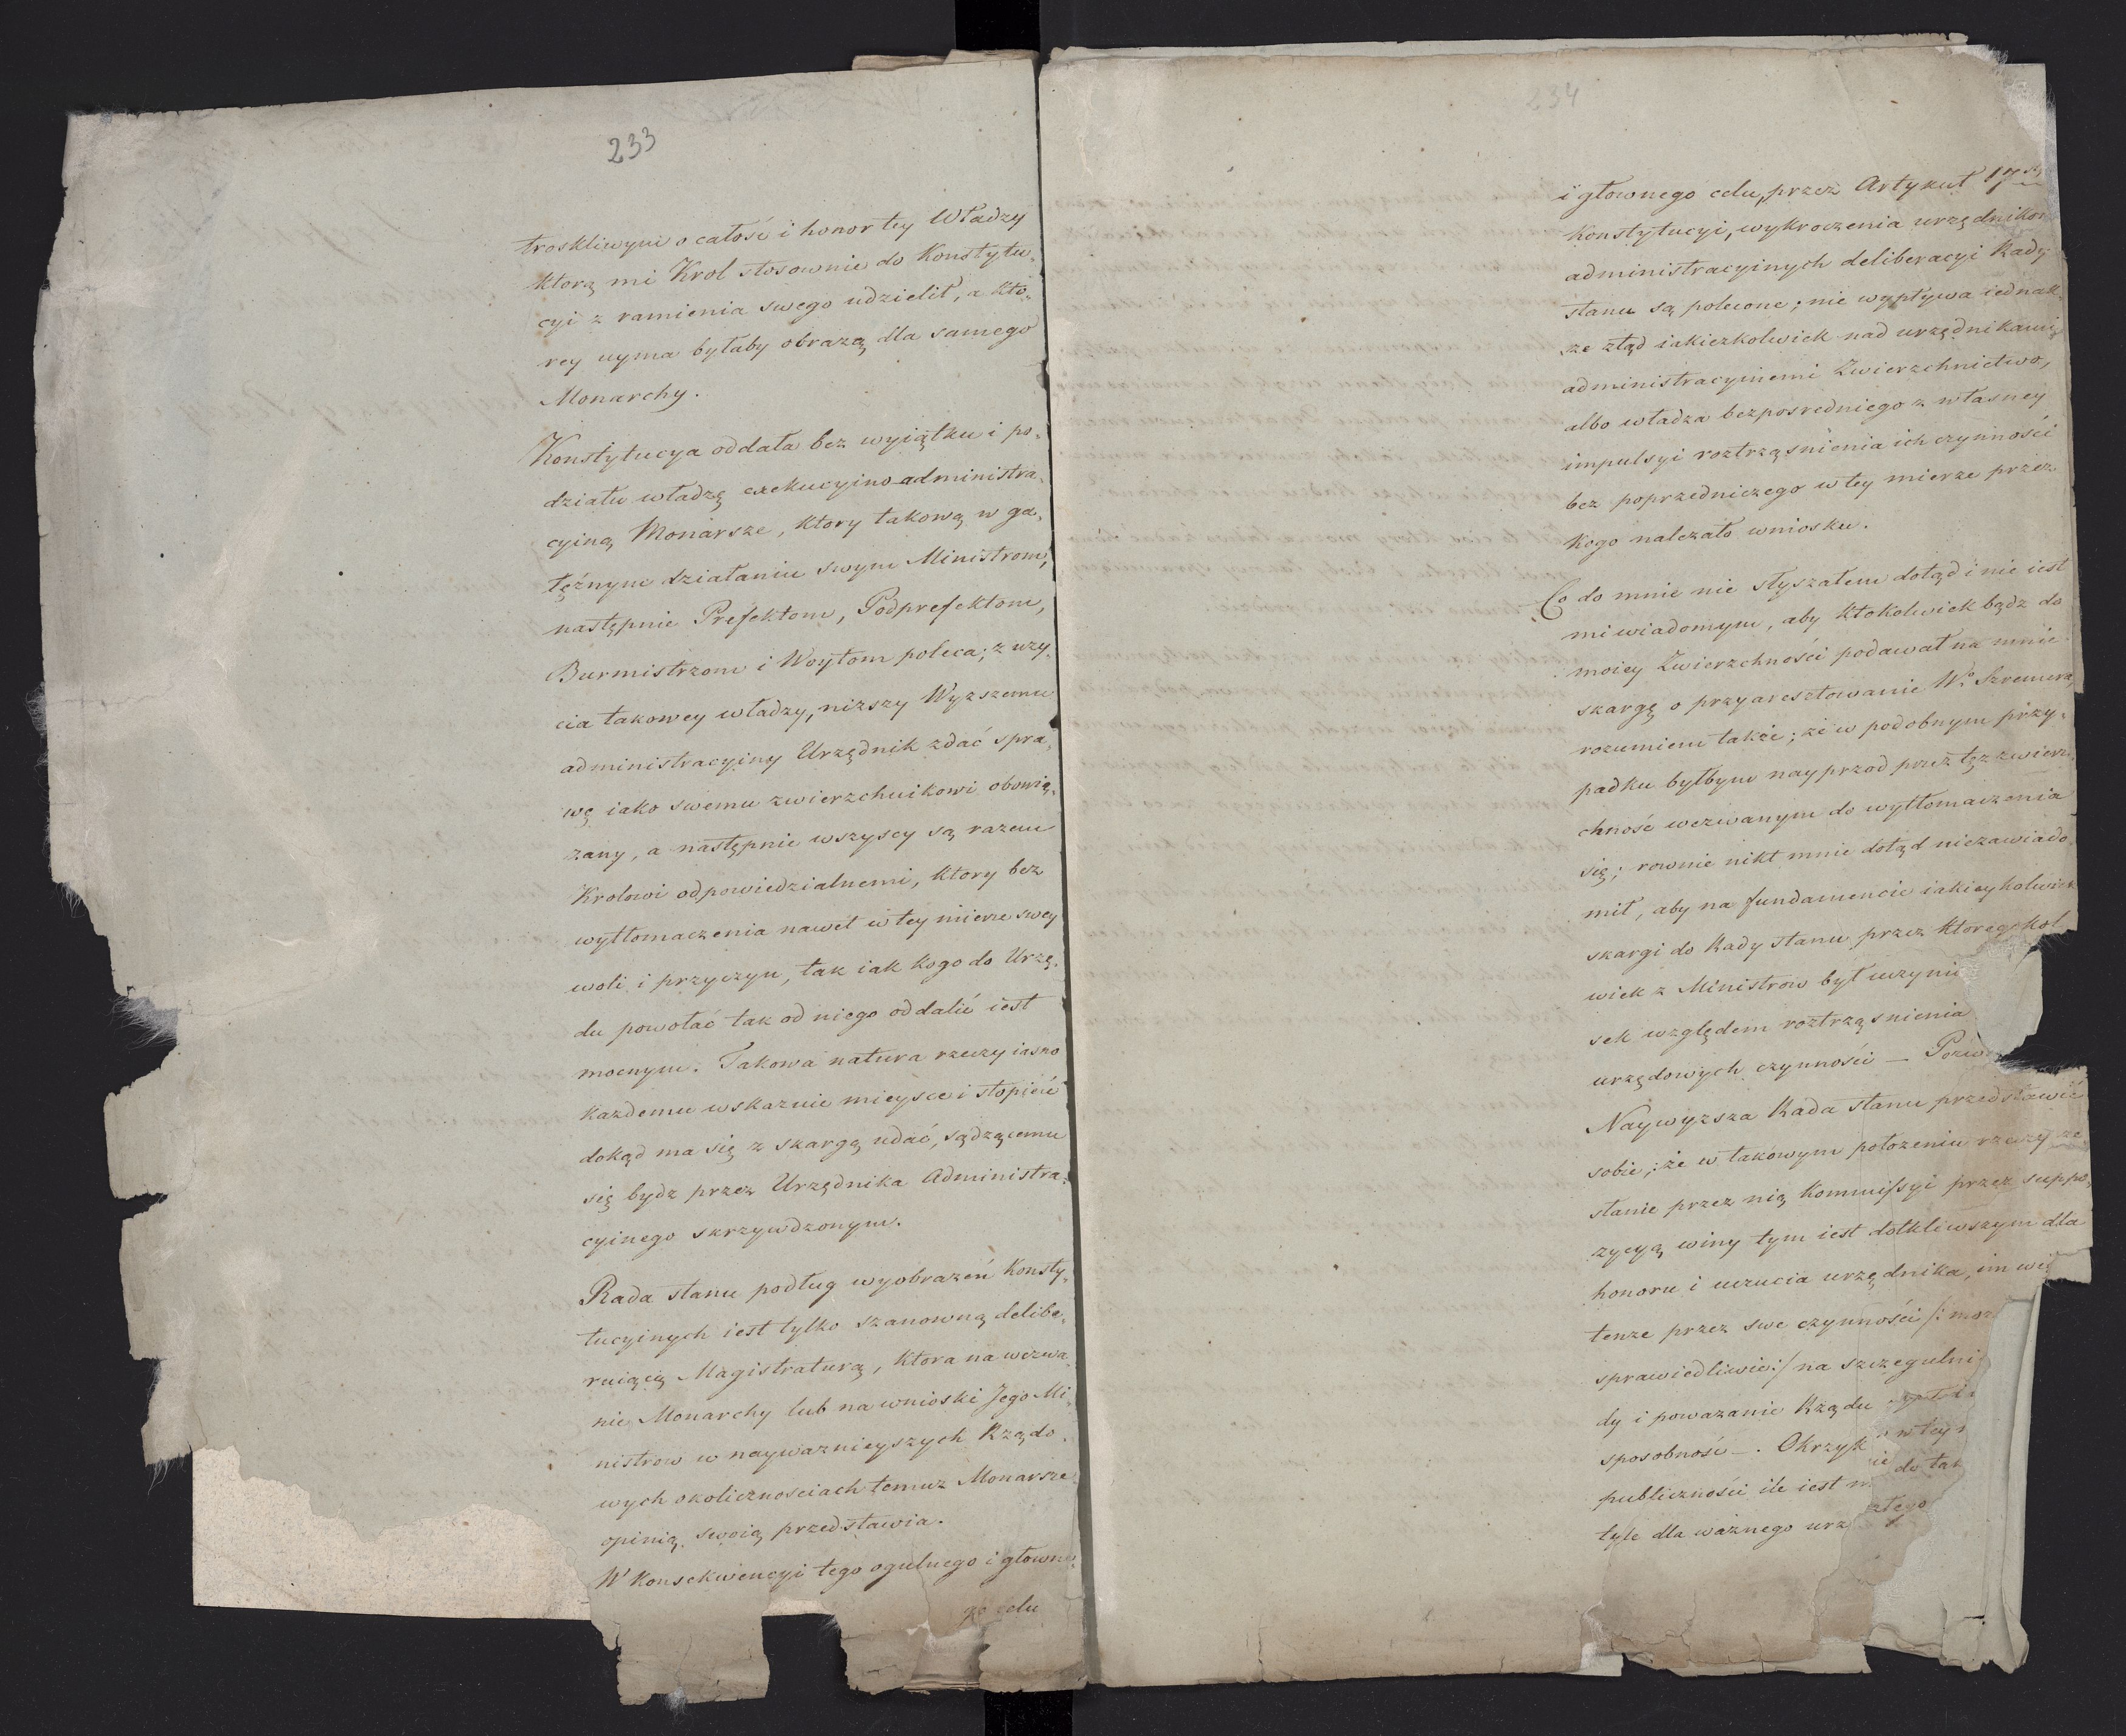 233
troskliwym o całość i honor tey Władzy
ktorą mi Krol stosownie do Konstytu,
cyi z ramienia swego udzielił, a kto,
rey uyma byłaby obrazą dla samego
Monarchy.
Konstytucya oddała bez wyiątku i po,
działu władzę exekucyino-administra,
cyiną Monarsze, ktory takową w ga,
łęźnym działaniu swym Ministrom,
następnie Prefektom, Podprefektom,
Burmistrzom i Woytom poleca; z uży,
cia takowey władzy, niższy Wyzszemu
administracyiny Urzędnik zdać spra,
wę iako swemu zwierzchnikowi obowią,
zany, a następnie wszyscy są razem
Krolowi odpowiedzialnemi, ktory bez
wytłomaczenia nawet w tey mierze swey
woli i przyczyn, tak iak kogo do Urzę,
du powołać tak od niego oddalić iest
mocnym. Takowa natura rzeczy iasno
każdemu wskaznie mieysce i stopień
dokąd ma się z skargą udać, sądzącemu
się bydz przez Urzędnika Administra,
cyinego skrzywdzonym.
Rada stanu podług wyobrażeń Konsty,
tucyinych iest tylko szanowną delibe,
ruiącą Magistraturą, ktora na wezwa,
nie Monarchy lub na wnioski Jego Mi,
nistrow w naywaznieyszych Rządo,
wych okolicznosciach temuz Monarsze
opinią swoią przedstawia.
W Konsekwencyi tego ogulnego i główne,
go celu
234
i głownego celu, przez Artykuł 17
Konstytucyi, wykroczenia urzędnikow
administracyinych deliberacyi Rady
stanu są polecone; nie wypływa iednak,
że ztąd iakiezkolwiek nad urzędnikami
administracyinemi Zwierzchnictwo,
albo władza bezposredniego z własney
impulsyi roztrząśnienia ich czynności
bez poprzedniczego w tey mierze przez
kogo należało wniosku.
Co do mnie nie słyszałem dotąd i nie iest
mi wiadomym, aby ktokolwiek bądz do
moiey Zwierzchności podawał na mnie
skargę o przyaresztowanie Wo Szremera,
rozumiem także; że w podobnym przy,
padku byłbym nayprzod przez tęż zwierz,
chność wezwanym do wytłomaczenia
się; rownie nikt mnie dotąd niezawiado,
mił, aby na fundamencie iakieykolwiek
skargi do Rady stanu przez ktoregokol,
wiek z Ministrow był uczyni
sek względem roztrząsnienia
urzędowych czynności —
Naywyzsza Rada stanu przedstawić
sobie; że w takowym położeniu rzeczy ze,
słanie przez nią Kommissyi przez suppo,
zycyą winy tym iest dotkliwszym dla
honoru i uczucia urzędnika, im wię
tenze przez swe czynności /: moz
sprawiedliwie :/ na szczegulni
dy i poważanie Rządu
sposobność —. Okrzyk w tey
publiczności ile iest do tak
tyle dla ważnego urz